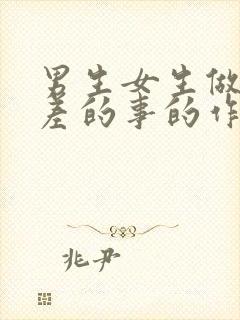 男生女生做
差的事的作
兆尹